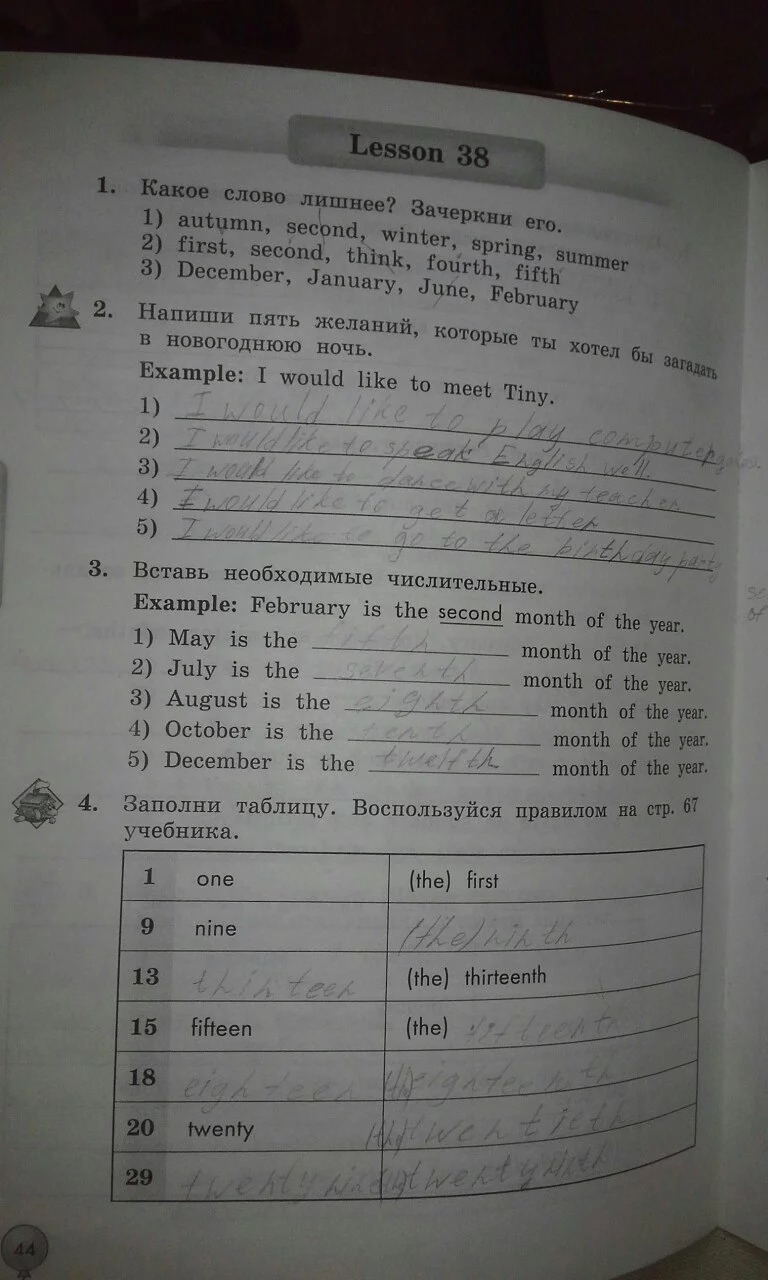 Lesson 38
1. Какое слово лишнее? Зачеркни его.
1) autumn, second, winter, spring, summer
2) first, second, think, fourth, fifth
3) December, January, June, February
2. Напиши пять желаний, которые ты хотел бы загадать
в новогоднюю ночь.
Example: I would like to meet Tiny.
1) I would like to play computer
2) I would like to speak English well.
3) I would like to dance with my teacher
4) I would like to get a letter
5) I would like to go to the birthday party
3. Вставь необходимые числительные.
Example: February is the second month of the year.
1) May is the fifth month of the year.
2) July is the seventh month of the year.
3) August is the eighth month of the year.
4) October is the tenth month of the year.
5) December is the twelfth month of the year.
4. Заполни таблицу. Воспользуйся правилом на стр. 67
учебника.
1 one (the) first
9 nine (the) ninth
13 thirteen (the) thirteenth
15 fifteen (the) fifteenth
18 eighteen (the) eighteenth
20 twenty (the) twentieth
29 twenty nine twenty ninth
44